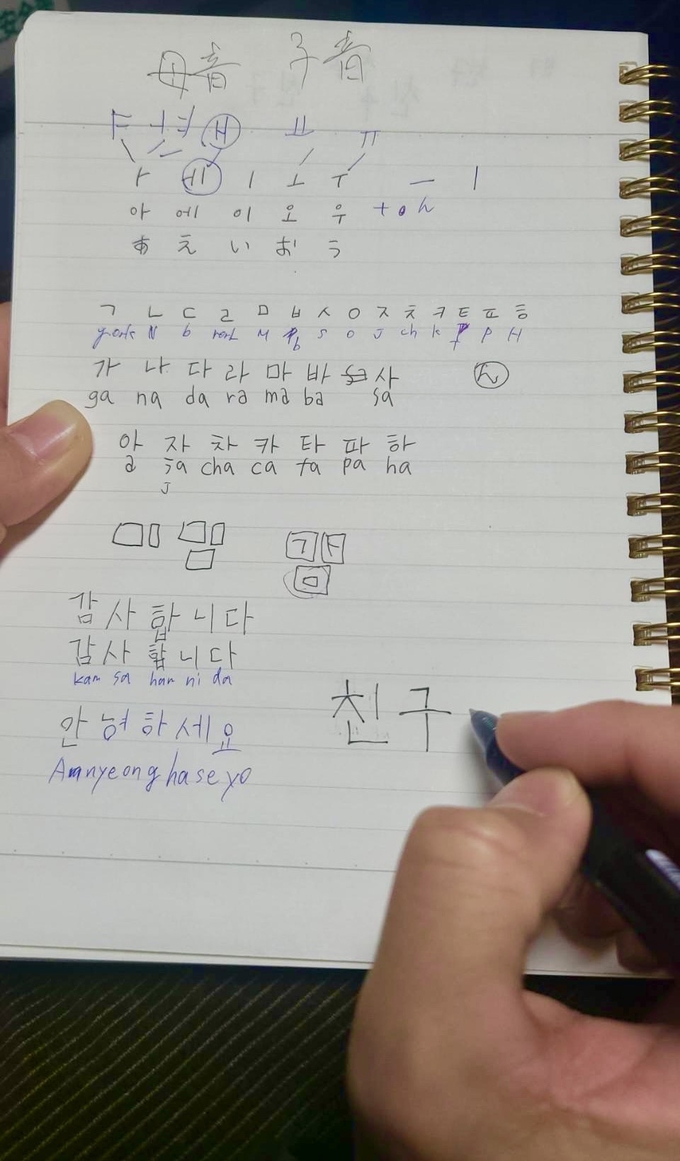 母音 子音
ㅑ ㅕ ㅐ ㅛ ㅠ
ㅏ ㅔ ㅣ ㅗ ㅜ ㅡ ㅣ
아 에 이 오 우 + o h
あ え い お う
ㄱ ㄴ ㄷ ㄹ ㅁ ㅂ ㅅ ㅇ ㅈ ㅊ ㅋ ㅌ ㅍ ㅎ
gork N b rorL M b S O J ch k T P H
가 나 다 라 마 바 사 ん
ga na da ra ma ba sa
아 자 차 카 타 파 하
a sa cha ca ta pa ha
J
ㄱ ㅏ
ㅁ
감사합니다
감사합니다
kam sa ham ni da
안녕하세요
Annyeong ha se yo
친구